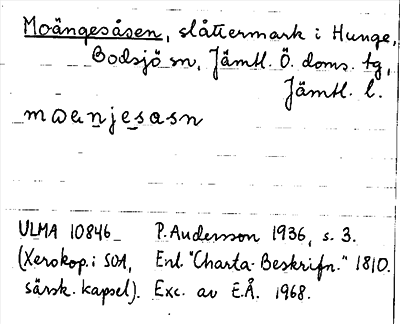 Moängesåsen, slåttermark i Hunge,
Bodsjö sn, Jämtl. Ö. doms. tg,
Jämtl. l.
mωenjesasn
ULMA 10846 P. Andersson 1936, s. 3.
(Xerokop. i SOA, Enl. "Charta-Beskrifn." 1810.
särsk. kapsel). Exc. av E.Å. 1968.